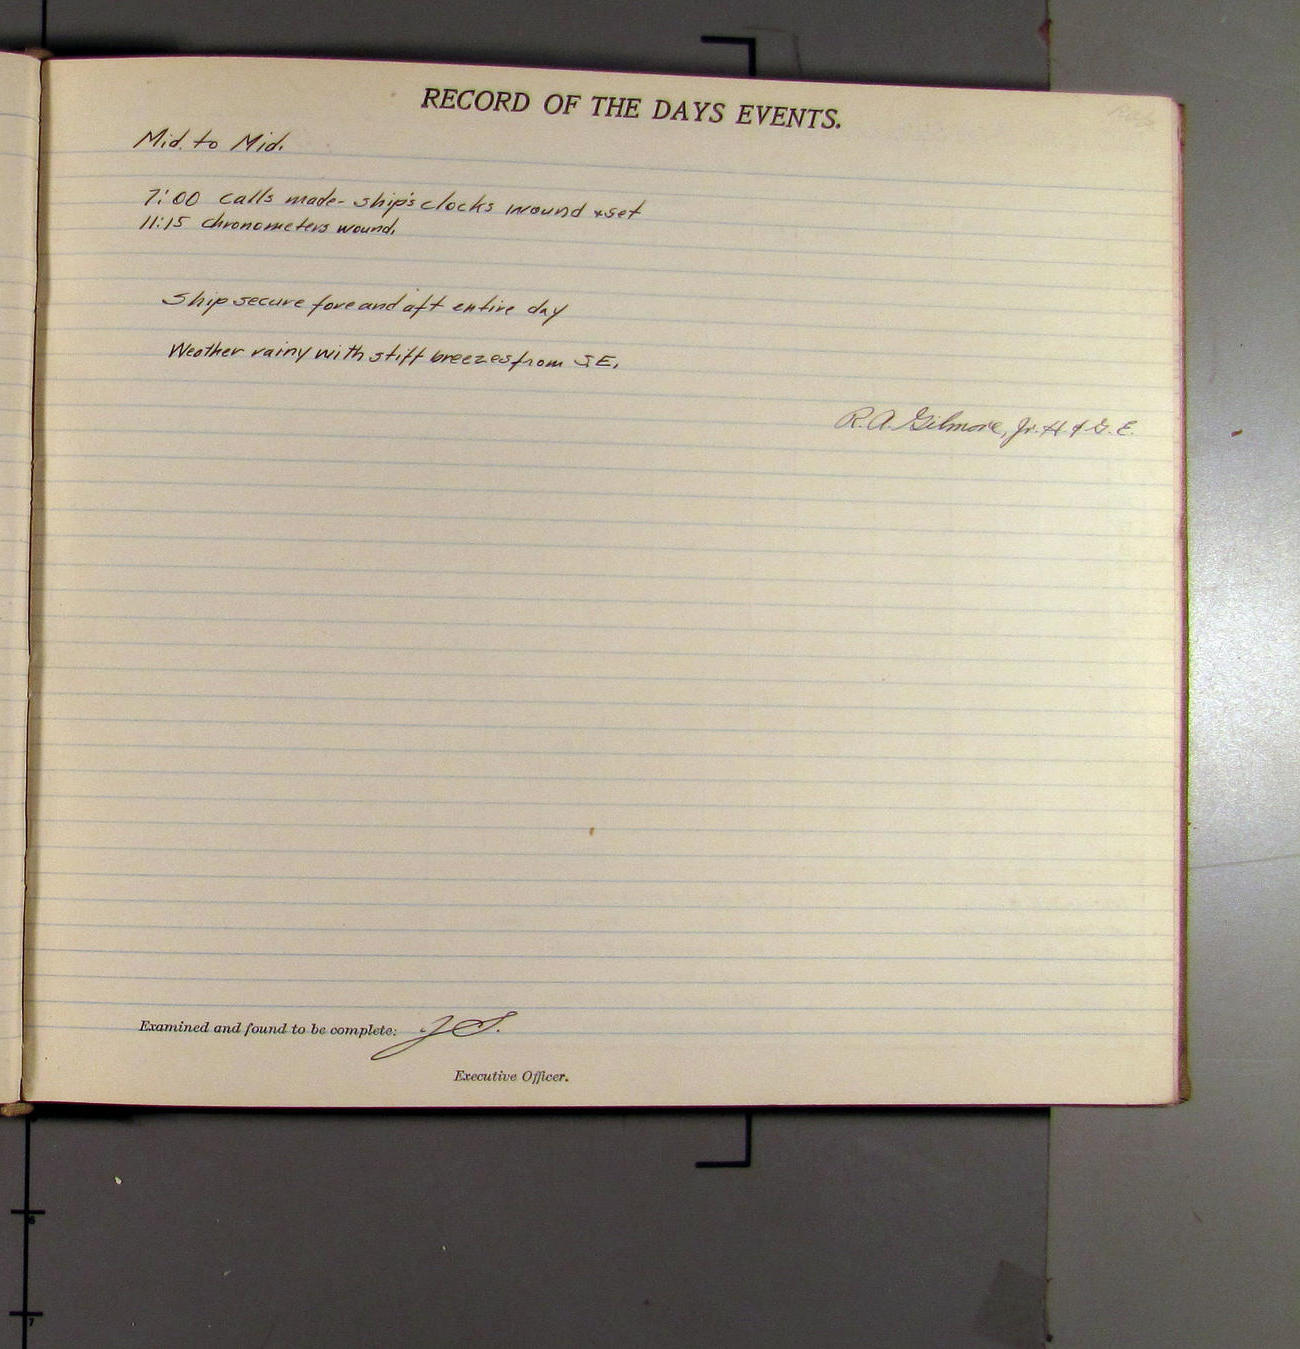 RECORD OF THE DAYS EVENTS.
Mid. to Mid.
7:00 calls made - ship's clocks wound & set
11:15 chronometers wound.
Ship secure fore and aft entire day
Weather rainy with stiff breezes from SE.
R.A. Gilmore, Jr. H. & G. E.
Examined and found to be complete:
Executive Officer.
6
7